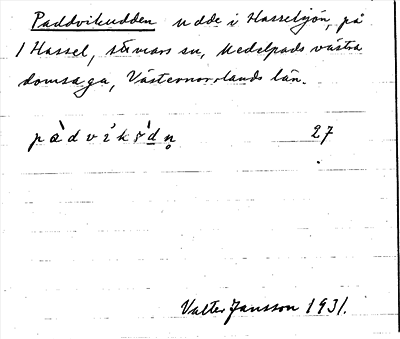 Paddvikudden udde i Hasselsjön, på
1 Hassel, Stömars sn, Medelpads västra
domsaga, Västernorrlands län.
pàdvı̇kʀ̀dn̥ 27
Valter Jansson 1931.